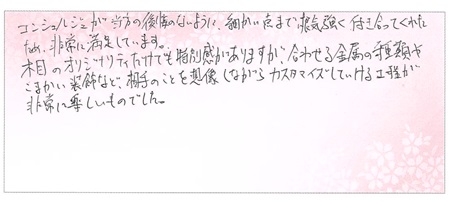 コンシェルジュが当方の後悔のないように、細かい点まで根気強く付き合ってくれた
ため、非常に満足しています。
木目のオリジナリティだけでも特別感がありますが、合わせる金属の種類や
こまかい装飾など、相手のことを想像しながらカスタマイズしていける工程が
非常に楽しいものでした。